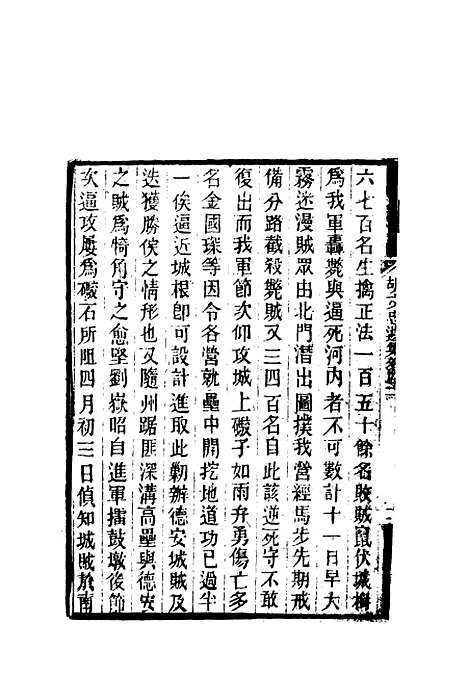 六七百名生擒正法一百五十餘名敗賊竄伏城梅
爲我軍轟斃與逼死河内者不可數計十一日早大
霧迷漫賊眾出北門潛出圖撲我營經馬步先期戒
備分路截殺斃賊又三四百名自此該逆死守不敢
復出而我軍節次仰攻城上礮子如雨弁勇傷亡多
名金國琛等因令各營就壘中開挖地道功已過半
一俟逼近城根卽可設計進取此勦辦德安城賊及
迭獲勝仗之情形也又隨州踞匪深溝高壘與德安
之賊爲犄角守之愈堅劉嶽昭自進軍擂鼓墩後節
次逼攻屢爲礮石所阻四月初三日偵知城賊於南
胡文忠遺集